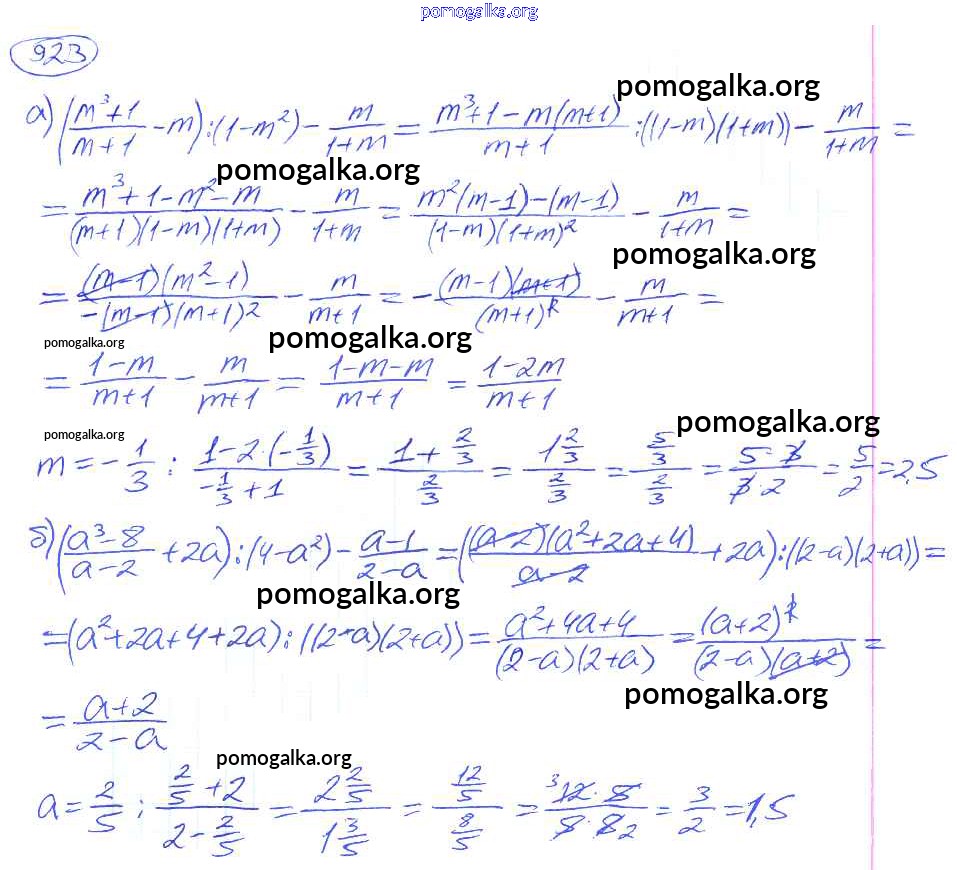 pomogalka.org
923
pomogalka.org
а) ((m³+1)/(m+1) - m) : (1-m²) - m/(1+m) = (m³+1-m(m+1))/(m+1) : ((1-m)(1+m)) - m/(1+m) =
pomogalka.org
= (m³+1-m²-m)/((m+1)(1-m)(1+m)) - m/(1+m) = (m²(m-1)-(m-1))/((1-m)(1+m)²) - m/(1+m) =
pomogalka.org
= ((m-1)(m²-1))/(-(m-1)(m+1)²) - m/(m+1) = - ((m-1)(m+1))/(m+1)² - m/(m+1) =
pomogalka.org pomogalka.org
= (1-m)/(m+1) - m/(m+1) = (1-m-m)/(m+1) = (1-2m)/(m+1)
pomogalka.org pomogalka.org
m = -1/3 ; (1-2·(-1/3))/(-1/3+1) = (1+2/3)/(2/3) = (1 2/3)/(2/3) = (5/3)/(2/3) = (5·3)/(3·2) = 5/2 = 2,5
б) ((a³-8)/(a-2) + 2a) : (4-a²) - (a-1)/(2-a) = (((a-2)(a²+2a+4))/(a-2) + 2a) : ((2-a)(2+a)) =
pomogalka.org
= (a²+2a+4+2a) : ((2-a)(2+a)) = (a²+4a+4)/((2-a)(2+a)) = (a+2)²/((2-a)(a+2)) =
pomogalka.org
= (a+2)/(2-a)
pomogalka.org
a = 2/5 ; (2/5+2)/(2-2/5) = (2 2/5)/(1 3/5) = (12/5)/(8/5) = ³(12·5)/(5·8)₂ = 3/2 = 1,5